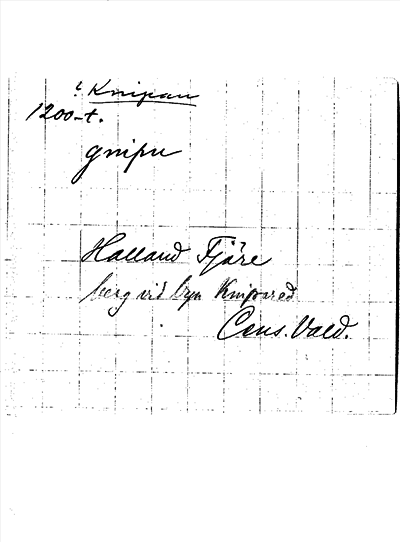 i Knipan
1200-t.
gnipu
Halland Fjäre
berg vid byn Knipared
Cens. Vald.